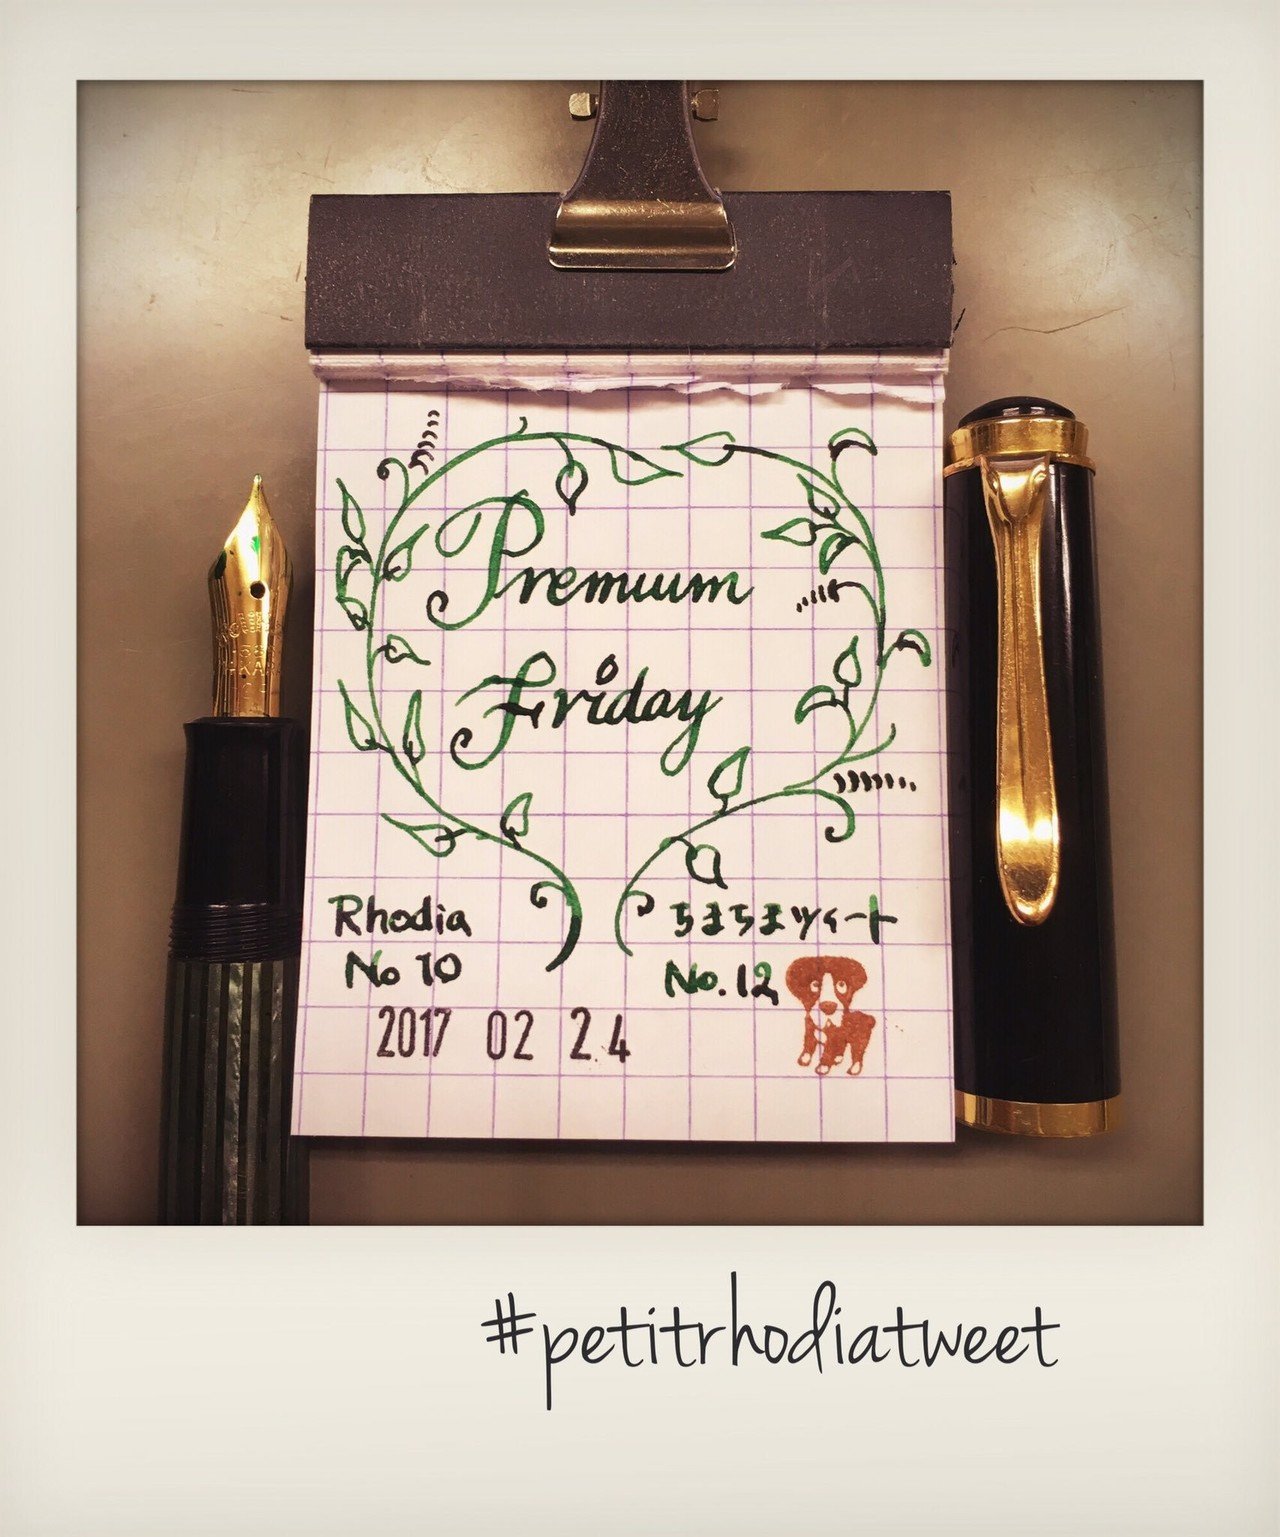 Premium
Friday
Rhodia
No 10
ちまちまツィート
No.12
2017 02 24
#petitrhodiatweet